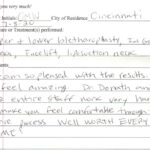 you very much!
Initials: CMW City of Residence Cincinnati
re or Treatment(s) performed:
per & lower blepharoplasty,
Facelift, liposuction neck
am so pleased with the results.
feel amazing. Dr. Donath and
entire staff were very
make you feel comfortable through
process. WELL WORTH EVERY